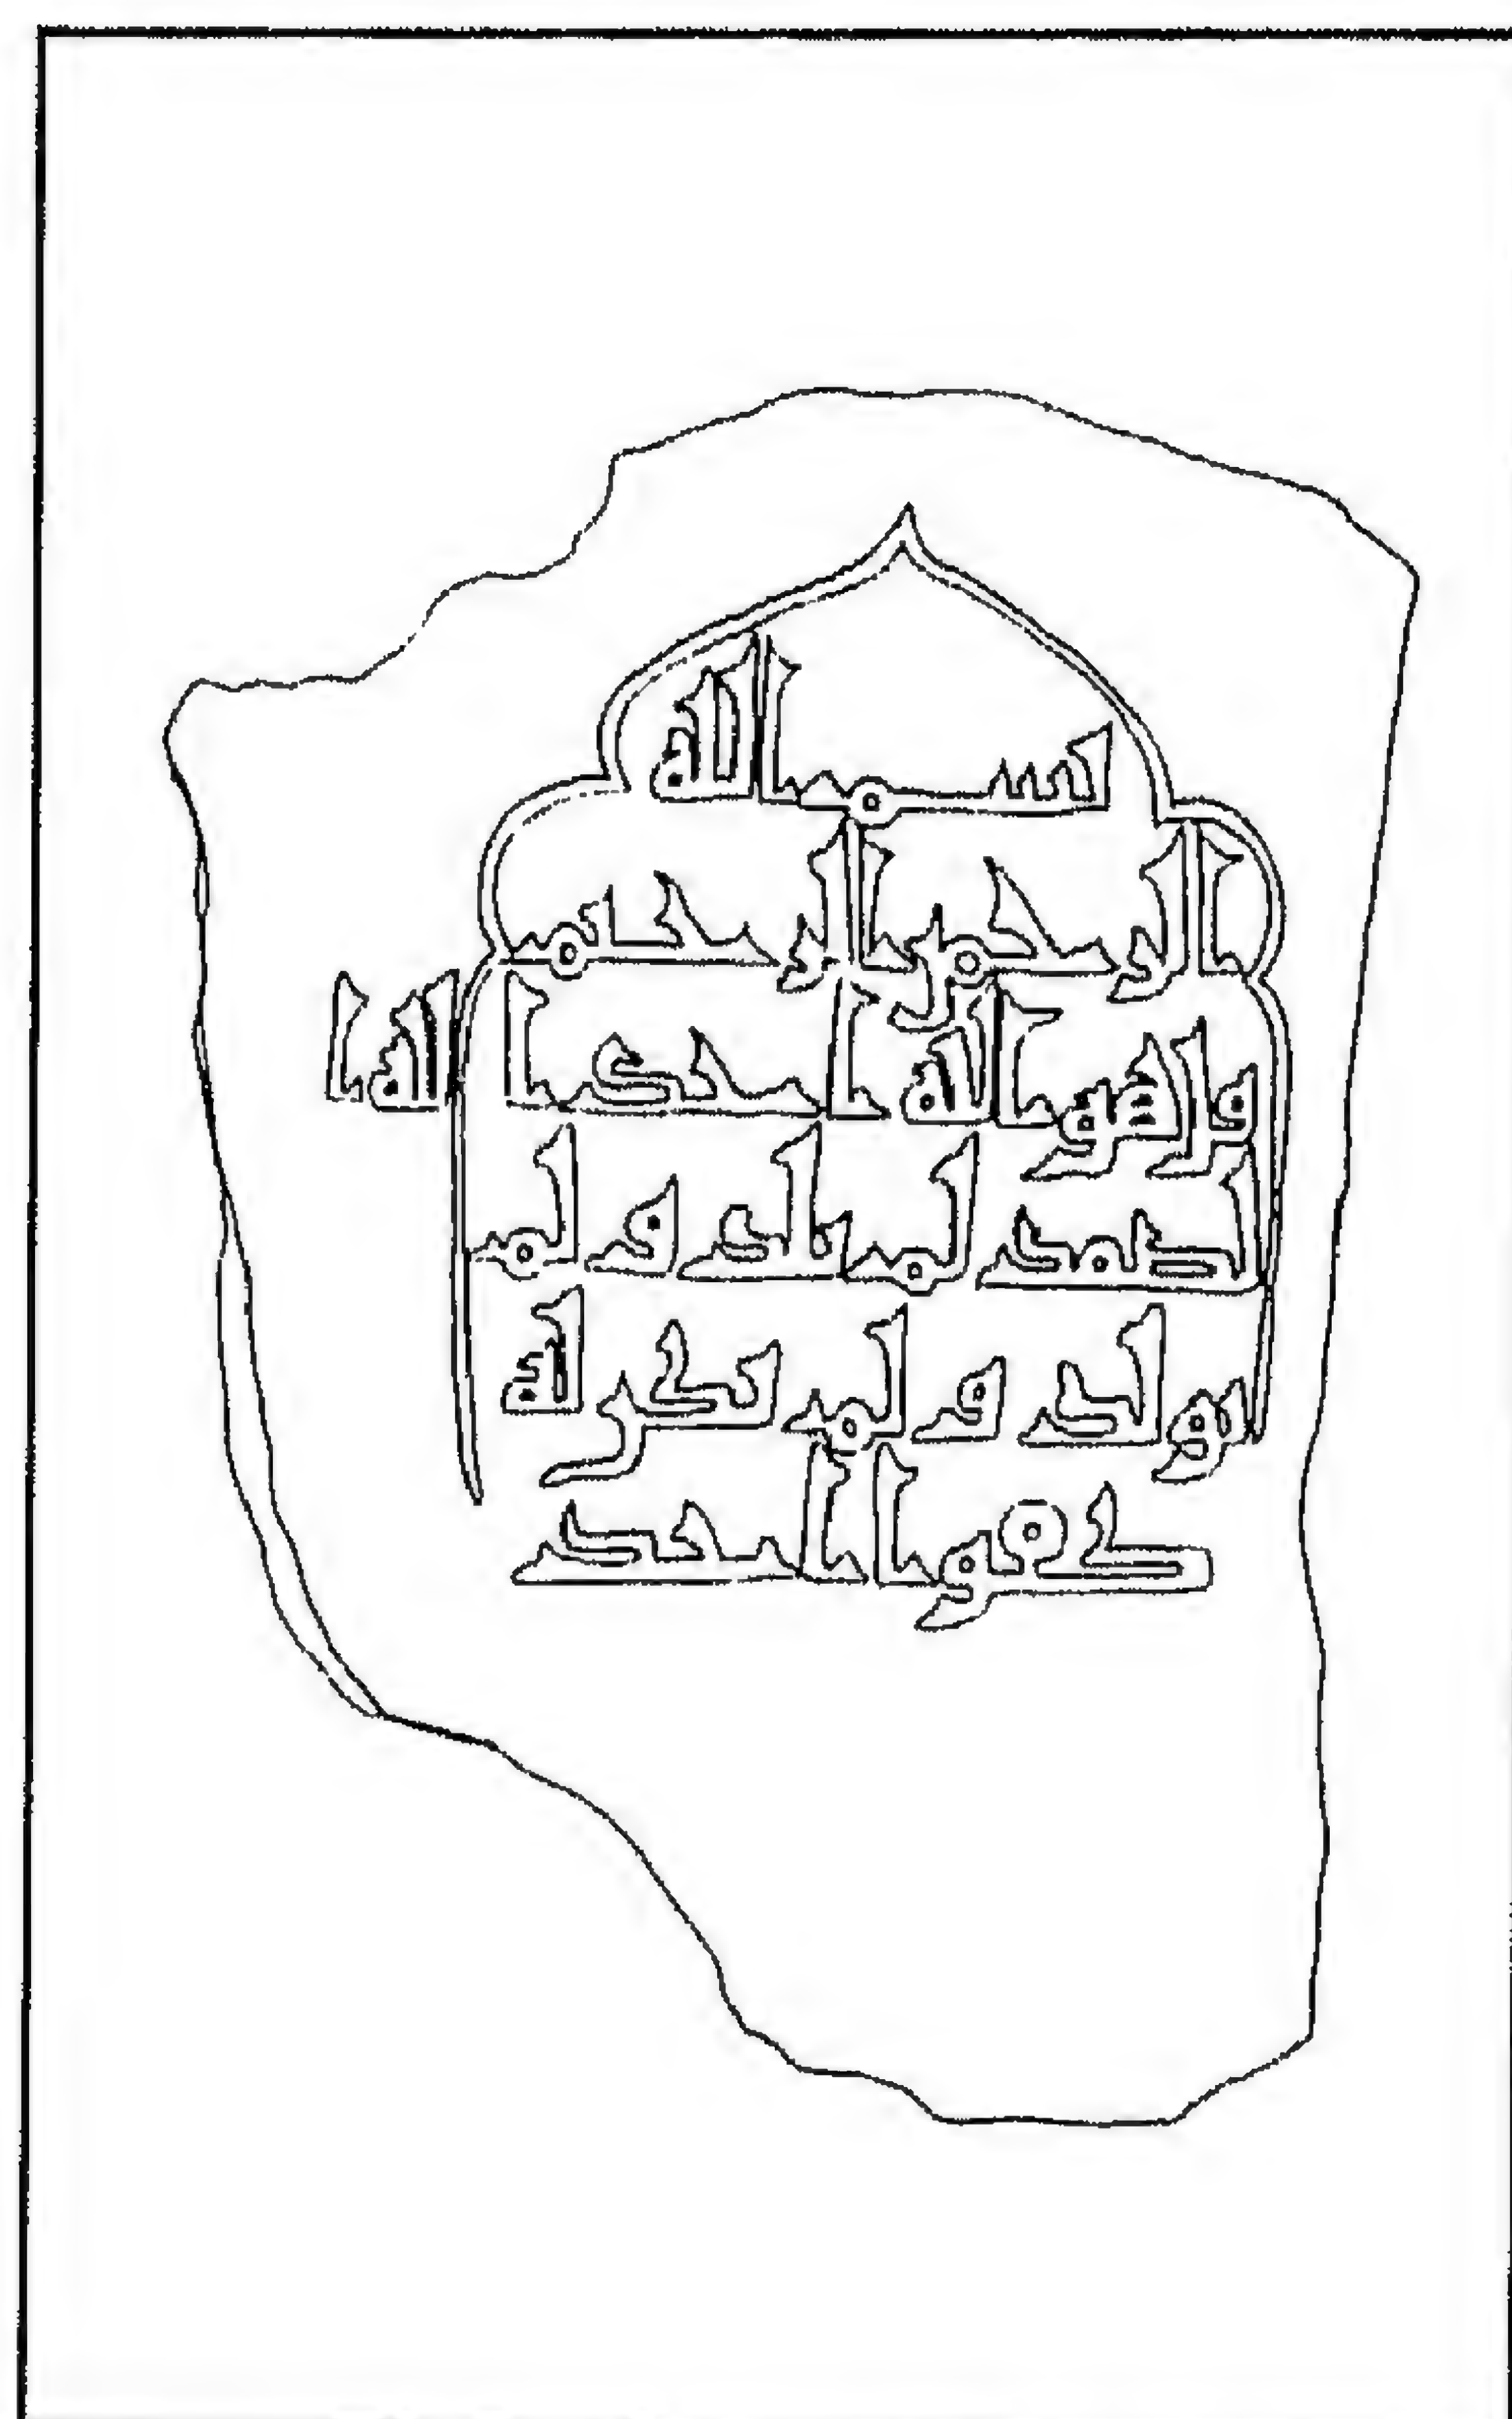 بسم الله
الرحمن الرحيم
قل هو الله احد الله ا
لصمد لم يلد و لم
يولد و لم يكن له
كفوا احد